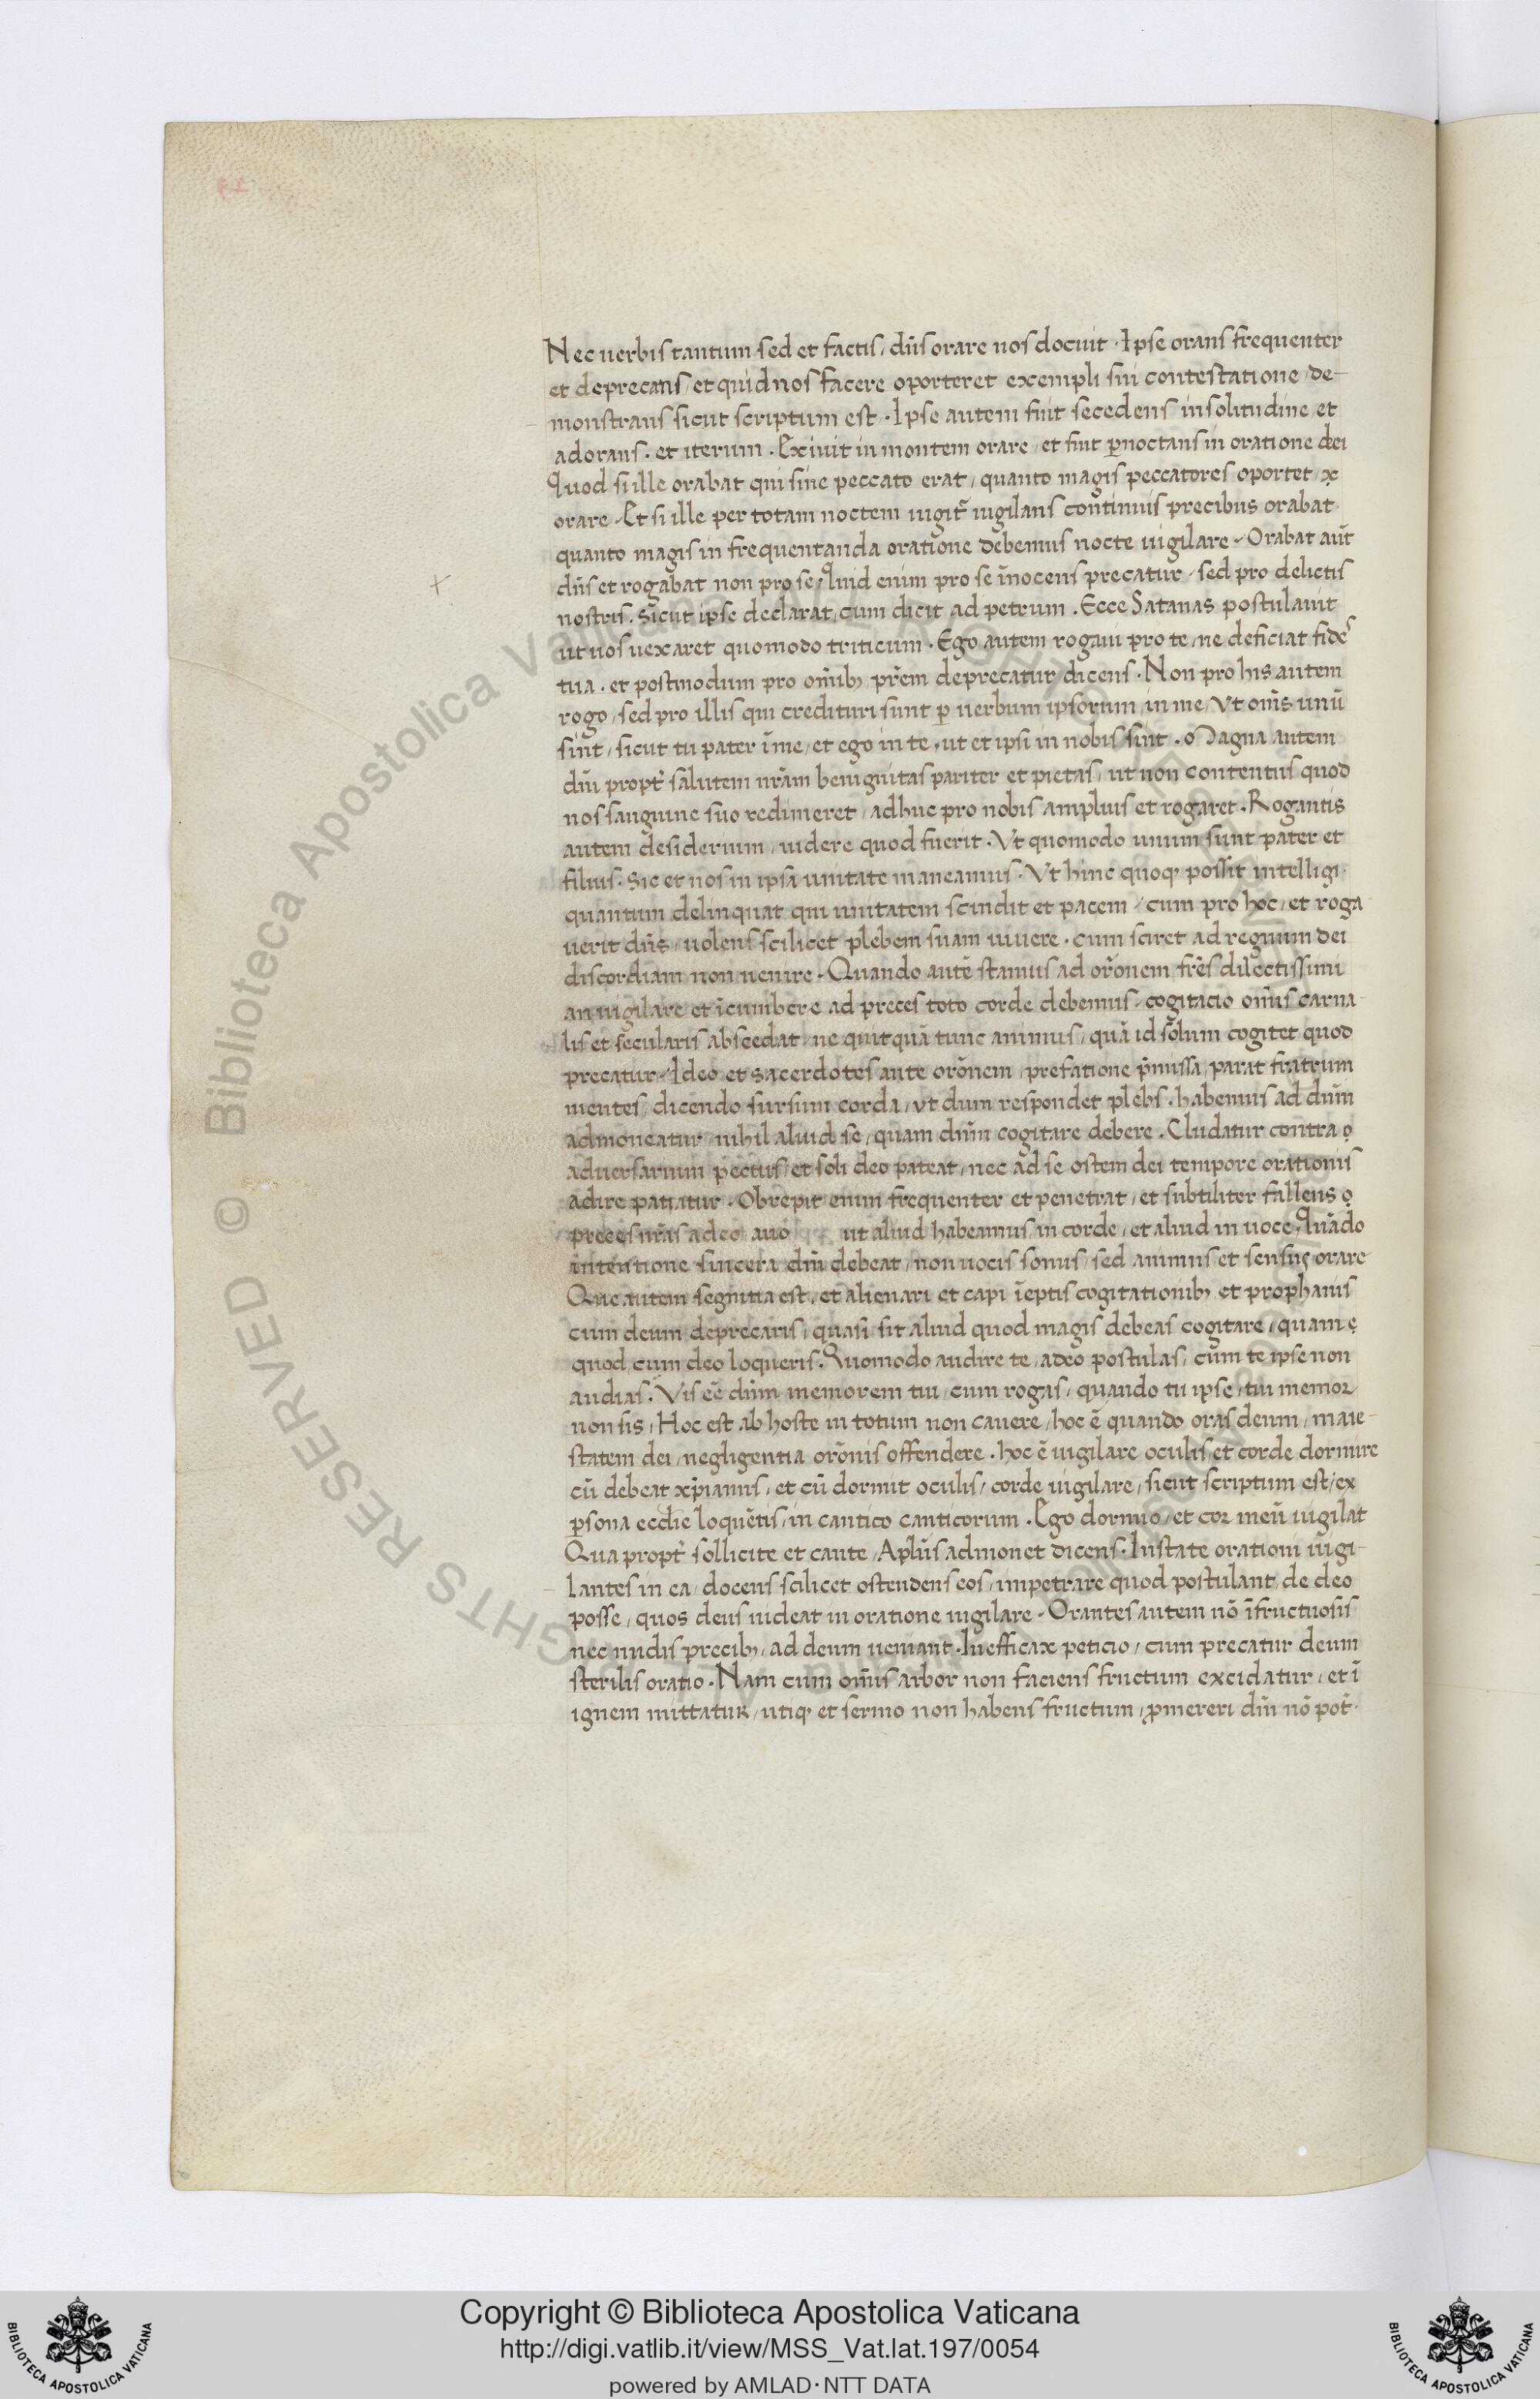 Nec uerbis tantum sed et factis, dn̄s orare nos docuit. Ipse orans frequenter
et deprecans, et quid nos facere oporteret exempli sui contestatione, de-
monstrans sicut scriptum est. Ipse autem fuit secedens in solitudine, et
adorans. et iterum. Exiuit in montem orare, et fuit ꝑnoctans in oratione dei
Quod si ille orabat qui sine peccato erat, quanto magis peccatores oportet,
orare. Et si ille per totam noctem iugit̄ uigilans continuis precibus orabat.
quanto magis in frequentanda oratione debemus nocte uigilare. Orabat aūt
dn̄s et rogabat non pro se, Quid enim pro se īnocens precatur, sed pro delictis
nostris. Sicut ipse declarat, cum dicit ad petrum. Ecce Satanas postulauit
ut uos uexaret quomodo triticum. Ego autem rogaui pro te, ne deficiat fides
tua. et postmodum pro om̄ibꝫ, pr̄em deprecatur dicens. Non pro his autem
rogo, sed pro illis qui credituri sunt ꝑ uerbum ipsorum, in me, Vt om̄s unū
sint, sicut tu pater ī me, et ego in te, ut et ipsi in nobis sint. Magna autem
dn̄i propt̄ salutem nr̄am benignitas pariter et pietas, ut non contentus quod
nos sanguine suo redimeret, adhuc pro nobis amplius et rogaret. Rogantis
autem desiderium, uidere quod fuerit. Vt quomodo unum sunt pater et
filius. Sic et nos in ipsa unitate maneamus. Vt hinc quoqꝫ possit intelligi.
quantum delinquat qui unitatem scindit et pacem, cum pro hoc, et roga
uerit dn̄s, uolens scilicet plebem suam uiuere. cum sciret ad regnum dei
discordiam non uenire. Quando autē stamus ad or̄onem fr̄es dilectissimi
an uigilare et īcumbere ad preces toto corde debemus, cogitacio om̄is carna-
lis et secularis abscedat, ne quitquā tunc animus, quā id solum cogitet quod
precatur. Ideo et sacerdotes ante orōnem, prefatione p̄missa, parat fratrum
mentes, dicendo sursum corda, ut dum respondet plebs. habemus ad dūm
admoneatur nihil aliud se, quam dn̄m cogitare debere. Cludatur contra
aduersarium pectus, et soli deo pateat, nec ad se ostem dei tempore orationis
adire patiatur. Obrepit enim frequenter et penetrat, et subtiliter fallens
preces nr̄as a deo auo ut aliud habeamus in corde, et aliud in uoce. Quādo
intentione sincera dn̄m debeat, non uocis sonus, sed animus et sensus orare
Que autem segnitia est, et alienari et capi īeptis cogitationibꝫ et prophanis
cum deum deprecaris, quasi sit aliud quod magis debeas cogitare, quam
quod cum deo loqueris. Quomodo audire te, a deo postulas, cum te ipse non
audias. Vis eē dn̄m memorem tui, cum rogas, quando tu ipse, tui memor
non sis, Hoc est ab hoste in totum non cauere, hoc ē quando oras deum, maie-
statem dei, negligentia orōnis offendere. hoc ē uigilare oculis, et corde dormire
cū debeat xp̄ianus, et cū dormit oculis, corde uigilare, sicut scriptum est, ex
ꝑsona eccl̄ie loquētis, in cantico canticorum. Ego dormio, et cor meū uigilat
Qua propt̄ sollicite et caute, Apl̄us admonet dicens. Instate orationi uigi-
lantes in ea, docens scilicet ostendens eos, impetrare quod postulant, de deo
posse, quos deus uideat in oratione uigilare. Orantes autem nō īfructuosis
nec nudis precibꝫ, ad deum ueniant. Inefficax peticio, cum precatur deum
sterilis oratio. Nam cum om̄is arbor non faciens fructum excidatur, et ī
ignem mittatur, utiqꝫ et sermo non habens fructum, ꝓmereri dn̄m nō pot̄.
© Biblioteca Apostolica Vaticana
RIGHTS RESERVED
Copyright © Biblioteca Apostolica Vaticana
http://digi.vatlib.it/view/MSS_Vat.lat.197/0054
powered by AMLAD·NTT DATA
BIBLIOTECA APOSTOLICA VATICANA
BIBLIOTECA APOSTOLICA VATICANA